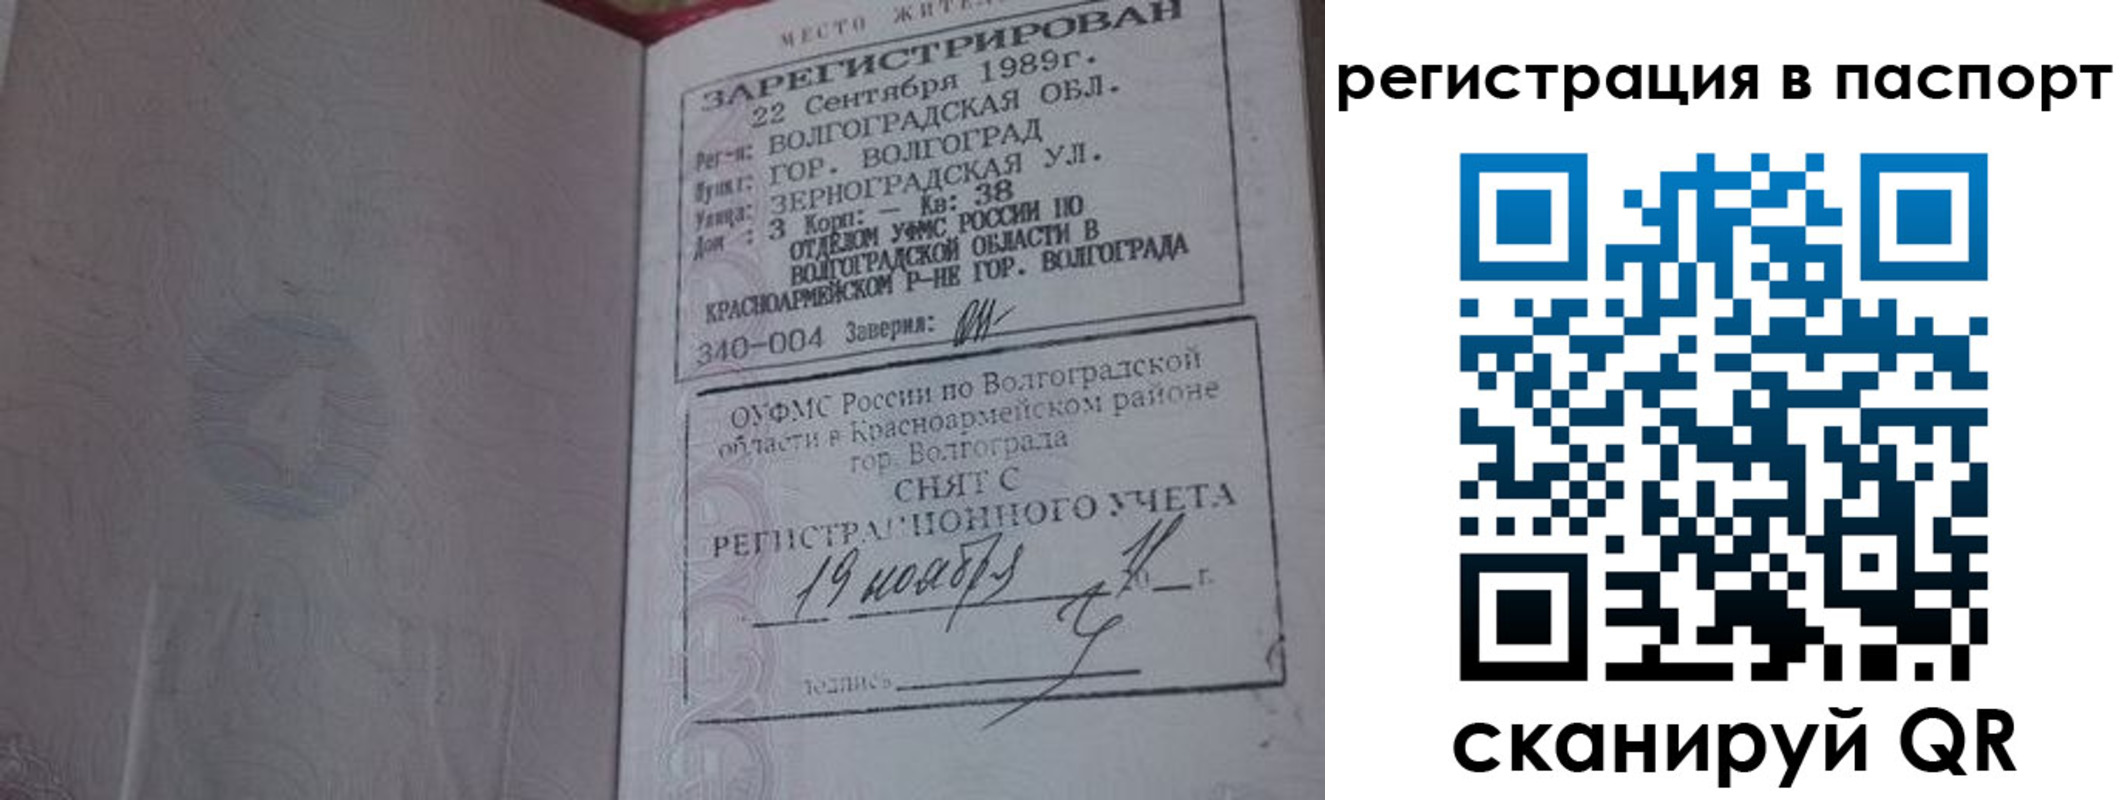 МЕСТО ЖИТЕЛ
ЗАРЕГИСТРИРОВАН
22 Сентября 1989г.
Рег-н: ВОЛГОГРАДСКАЯ ОБЛ.
Пункт: ГОР. ВОЛГОГРАД
Улица: ЗЕРНОГРАДСКАЯ УЛ.
Дом : 3 Корп: — Кв: 38
ОТДЕЛОМ УФМС РОССИИ ПО
ВОЛГОГРАДСКОЙ ОБЛАСТИ В
КРАСНОАРМЕЙСКОМ Р-НЕ ГОР. ВОЛГОГРАДА
340-004 Заверил:
ОУФМС России по Волгоградской
области в Красноармейском районе
гор. Волгограда
СНЯТ С
РЕГИСТРАЦИОННОГО УЧЕТА
19 ноября 20 г.
подпись
регистрация в паспорт
сканируй QR